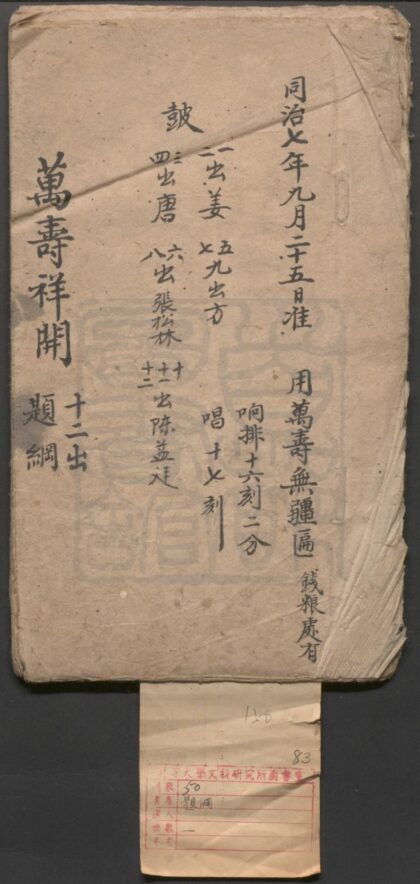 同治七年九月二十五日准　用萬壽無疆匾　錢粮處有
响排十六刻二分
唱十七刻
鼓
一二出姜　五七九出方
三四出唐　六八出張松林　十十一十二出陈益廷
萬壽祥開　十二出題綱
120
83
大學文科研究所圖書室
50
題綱
一